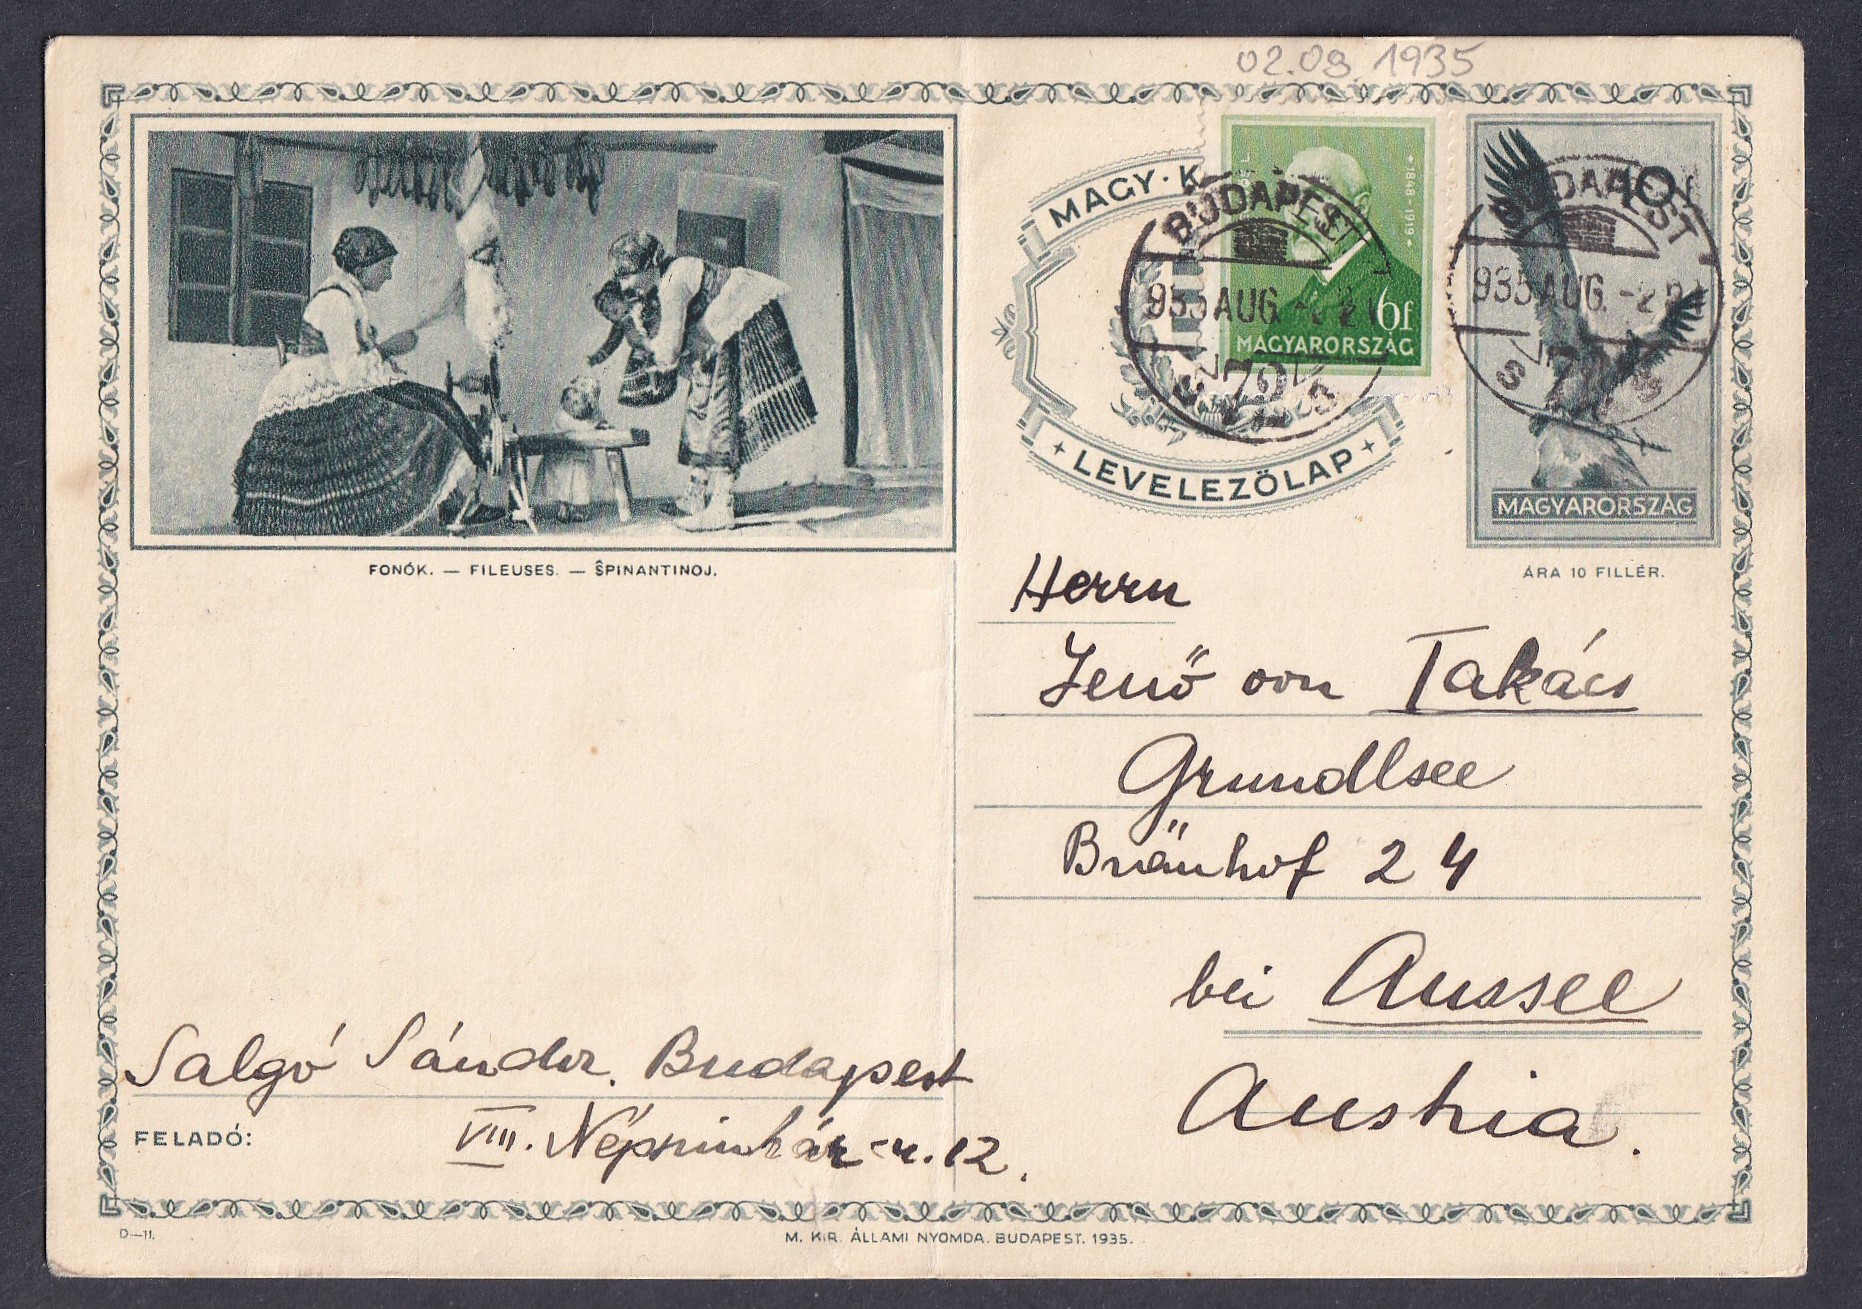 02.08 1935
MAGY. K
LEVELEZŐLAP
1848-1919
6f
MAGYARORSZÁG
BUDAPEST
935 AUG. -2
72
10f
MAGYARORSZÁG
BUDAPEST
935 AUG. -2
72
ÁRA 10 FILLÉR.
FONÓK. — FILEUSES. — ŜPINANTINOJ.
Herrn
Jenő von Takács
Grundlsee
Bräuhof 24
bei Aussee
Austria.
Salgó Sándor. Budapest
FELADÓ: VIII. Népszinház-u. 12.
D—11.
M. KIR. ÁLLAMI NYOMDA. BUDAPEST. 1935.